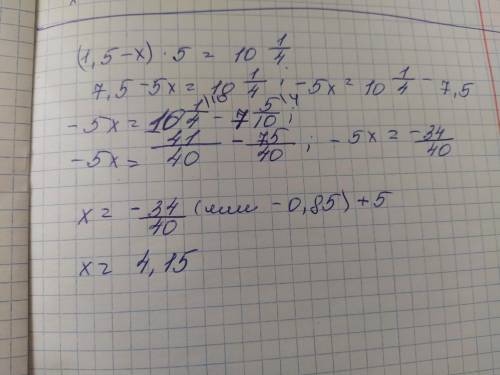 (1,5-x)·5 = 10 1/4
7,5-5x = 10 1/4 ; -5x = 10 1/4 - 7,5
-5x = 10 1/4 \10 - 7 5/10 \4 ;
-5x = 41/40 - 75/40 ; -5x = -34/40
x = -34/40 (или -0,85) + 5
x = 4,15